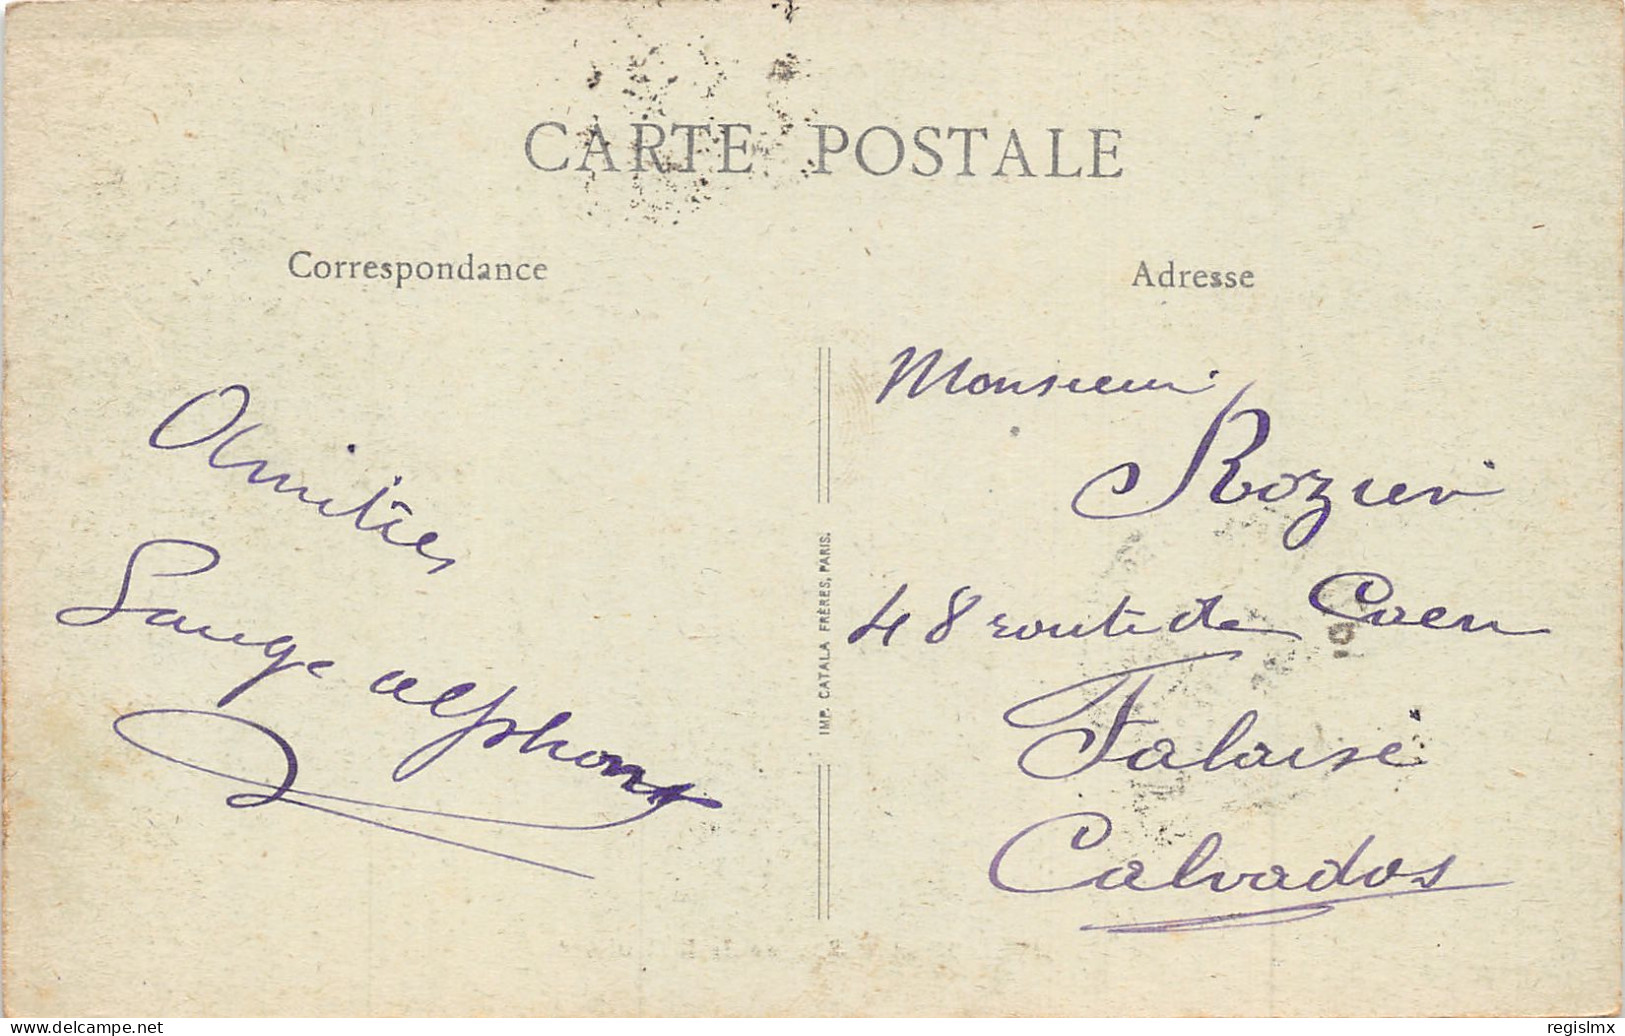 CARTE POSTALE
Correspondance
Adresse
Amitiés
Sauge alphonse
IMP. CATALA FRÈRES, PARIS.
Monsieur
Rozier
48 route de Caen
Falaise
Calvados
www.delcampe.net
regislmx